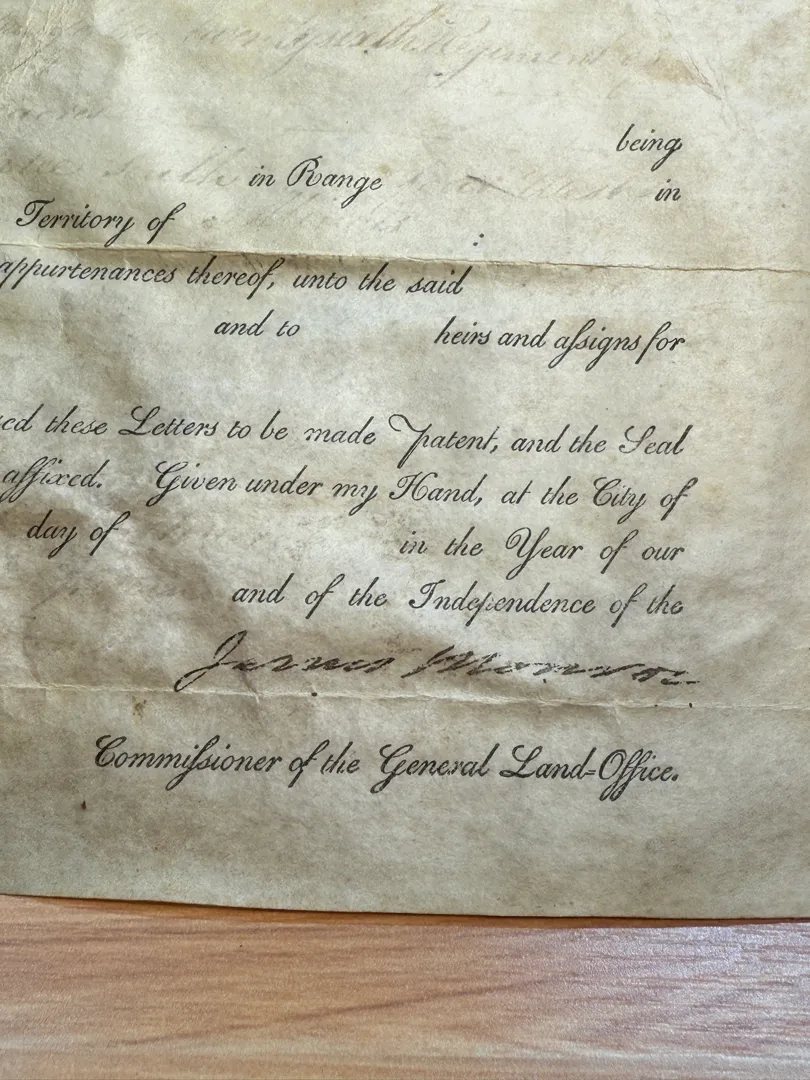 Regiment
being
in Range in
Territory of :
appurtenances thereof, unto the said
and to heirs and aſsigns for
these Letters to be made Patent, and the Seal
affixed. Given under my Hand, at the City of
day of in the Year of our
and of the Independence of the
James Monroe
Commiſsioner of the General Land=Office.